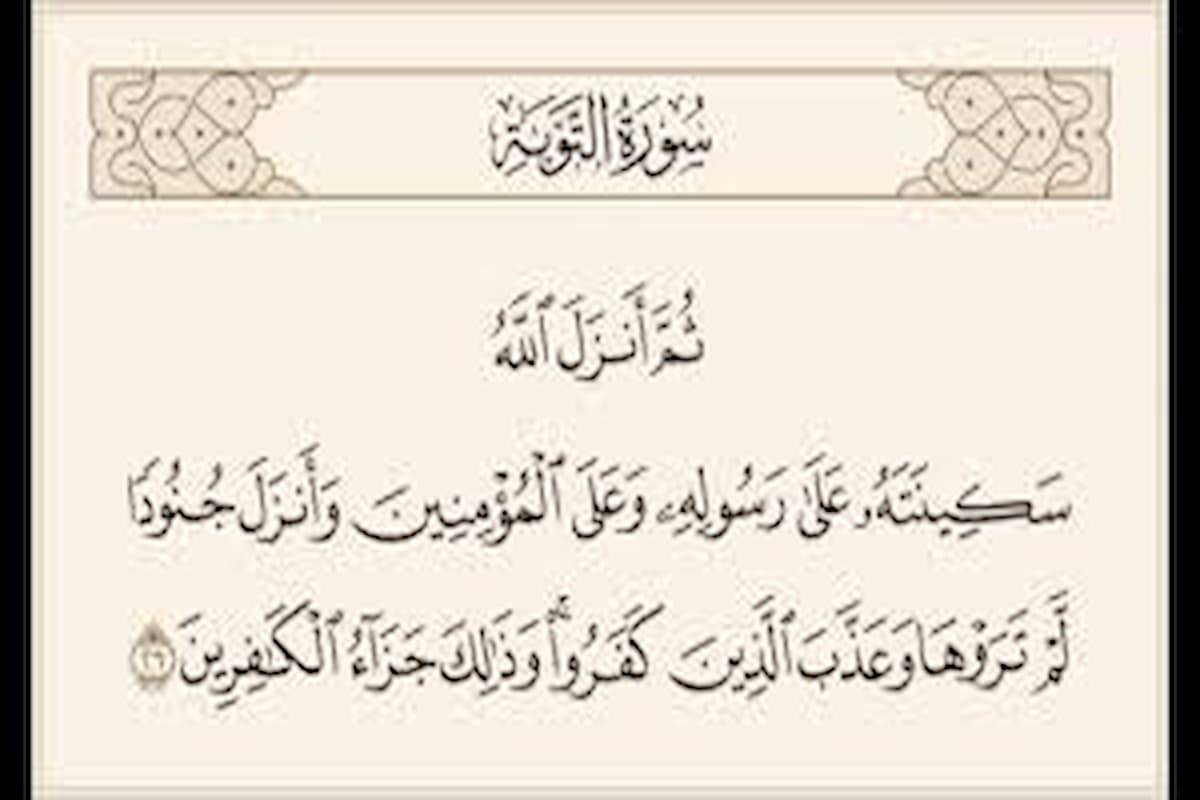 سُورَةُ التَّوْبَةِ
ثُمَّ أَنزَلَ ٱللَّهُ
سَكِينَتَهُۥ عَلَىٰ رَسُولِهِۦ وَعَلَى ٱلْمُؤْمِنِينَ وَأَنزَلَ جُنُودًا
لَّمْ تَرَوْهَا وَعَذَّبَ ٱلَّذِينَ كَفَرُوا۟ ۚ وَذَٰلِكَ جَزَآءُ ٱلْكَٰفِرِينَ ٢٦